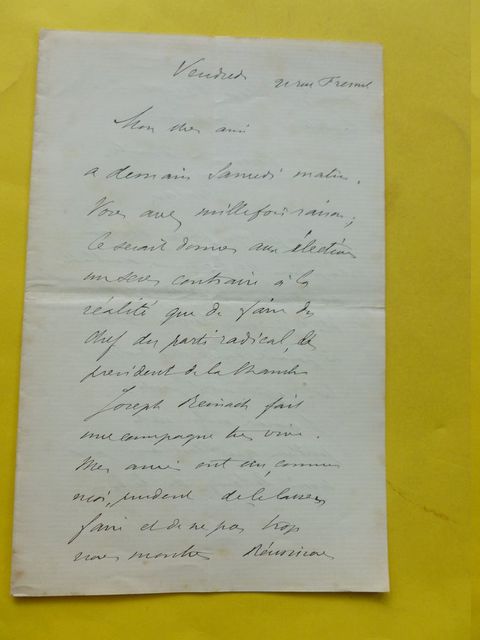 Vendredi
21 rue Fresnel
Mon cher ami
a demain Samedi matin.
Vous avez mille fois raison;
Ce serait donner aux élections
un sens contraire à la
réalité que de faire du
chef du parti radical, le
président de la Chambre
Joseph Reinach fait
une campagne très vive.
Mes amis ont cru, comme
moi, prudent de le laisser
faire et de ne pas trop
nous montrer